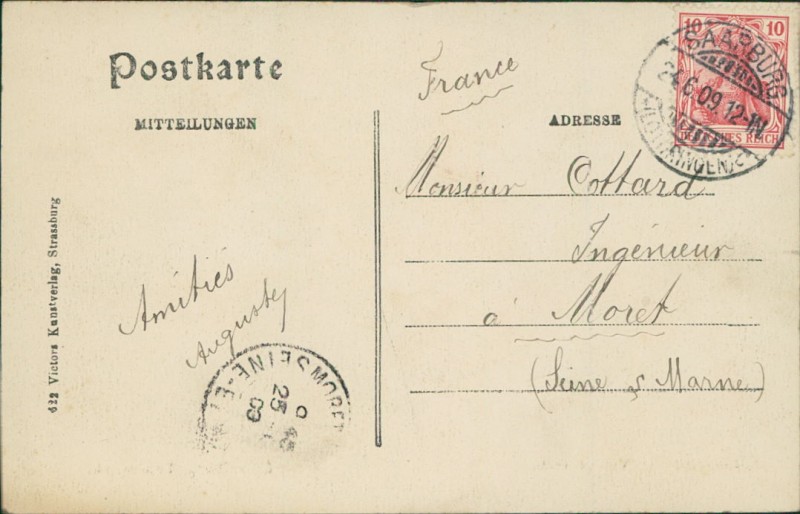 Postkarte
MITTEILUNGEN
ADRESSE
France
10 10
SAARBURG
24.6.09.12-1N.
(LOTHRINGEN) c
DEUTSCHES REICH
Monsieur Cottard
Ingénieur
à Moret
(Seine & Marne)
Amitiés
Auguste
MORET
SEINE-ET
25
09
622 Victors Kunstverlag, Strassburg